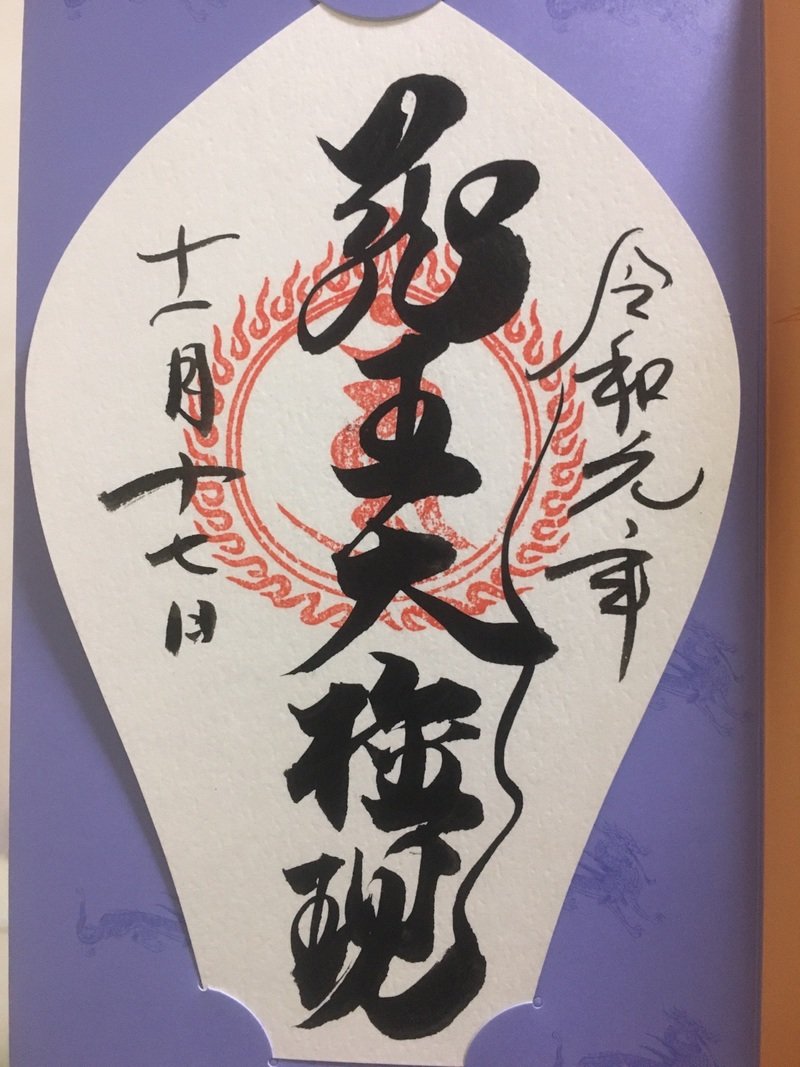 令和元年
蔵王大権現
十一月十七日